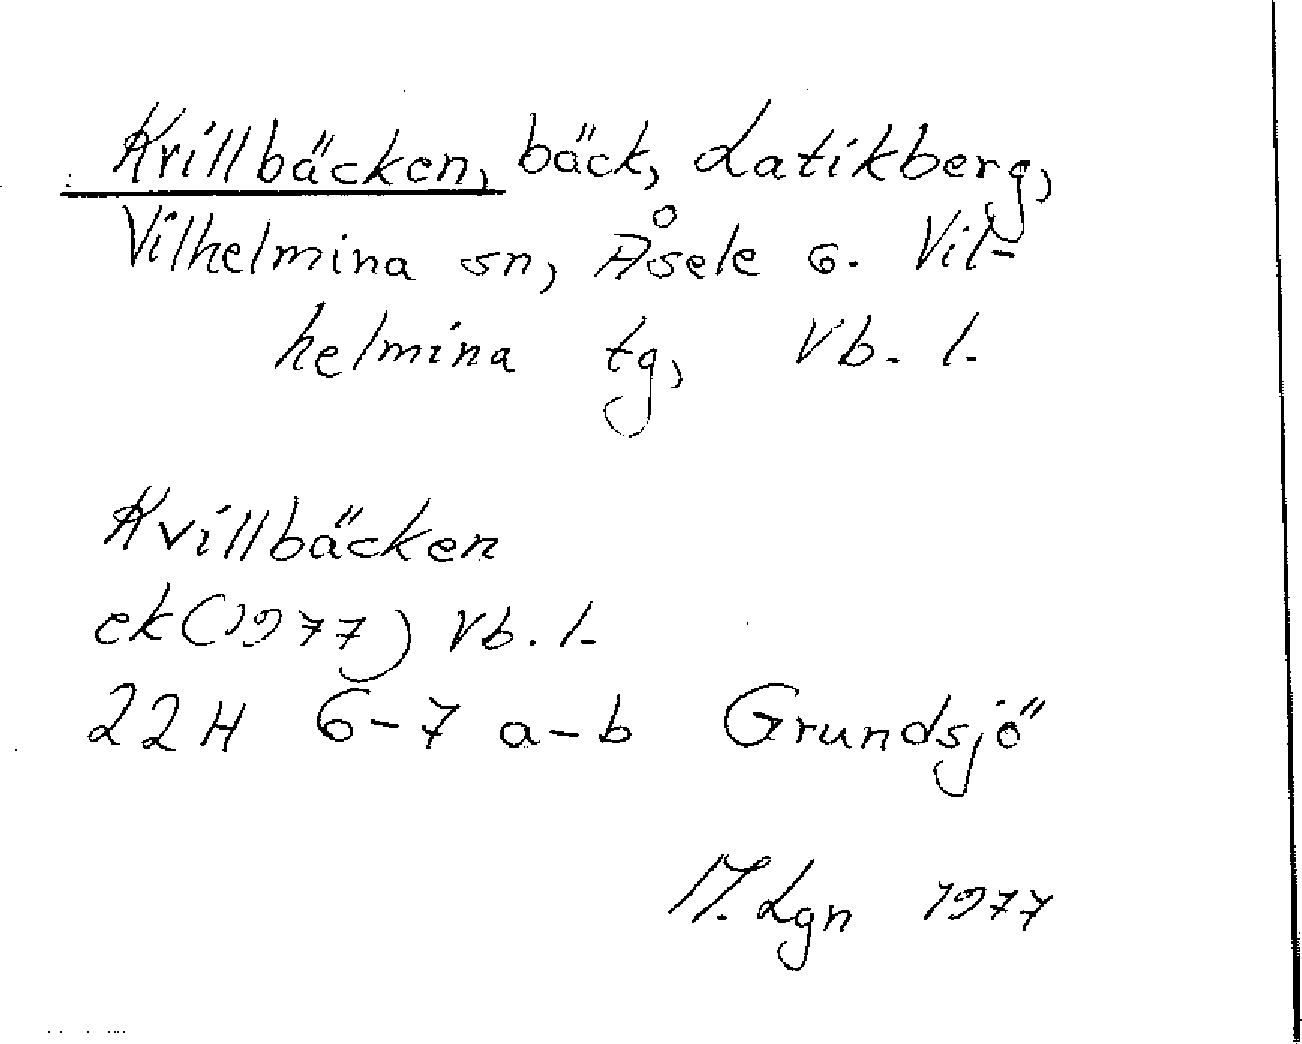 Krillbäcken, bäck, Latikberg,
Vilhelmina sn, Åsele 6. Vil-
helmina tg, Vb. l.
Kvillbäcken
ek (1977) Vb. l.
22H 6-7 a-b Grundsjö
M. Lgn 1977